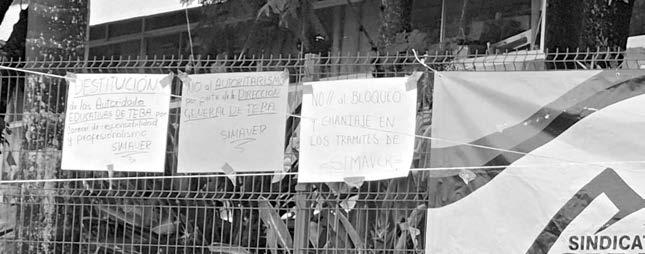 DESTITUCIÓN
de las Autoridades
EDUCATIVAS DE TEBA por
carecer de responsabilidad
y profesionalismo
SIMAVER
NO al AUTORITARISMO
por parte de la DIRECCIÓN
GENERAL DE TEBA
SIMAVER
NO!! al BLOQUEO
Y CHANTAJE EN
LOS TRAMITES DE
SIMAVER
SINDICAT